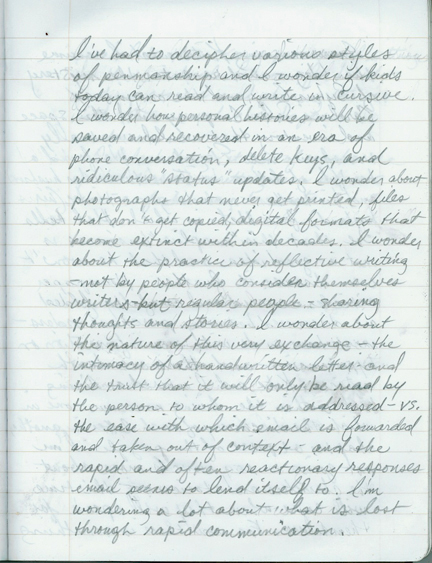 I've had to decipher various styles
of penmanship and I wonder if kids
today can read and write in cursive.
I wonder how personal histories will be
saved and recovered in an era of
phone conversation, delete keys, and
ridiculous "status" updates. I wonder about
photographs that never get printed, files
that don't get copied, digital formats that
become extinct within decades. I wonder
about the practice of reflective writing
-not by people who consider themselves
writers-but regular people - sharing
thoughts and stories. I wonder about
the nature of this very exchange - the
intimacy of a handwritten letter and
the trust that it will only be read by
the person to whom it is addressed - vs.
the ease with which email is forwarded
and taken out of context - and the
rapid and often reactionary responses
email seems to lend itself to. I'm
wondering a lot about what is lost
through rapid communication.